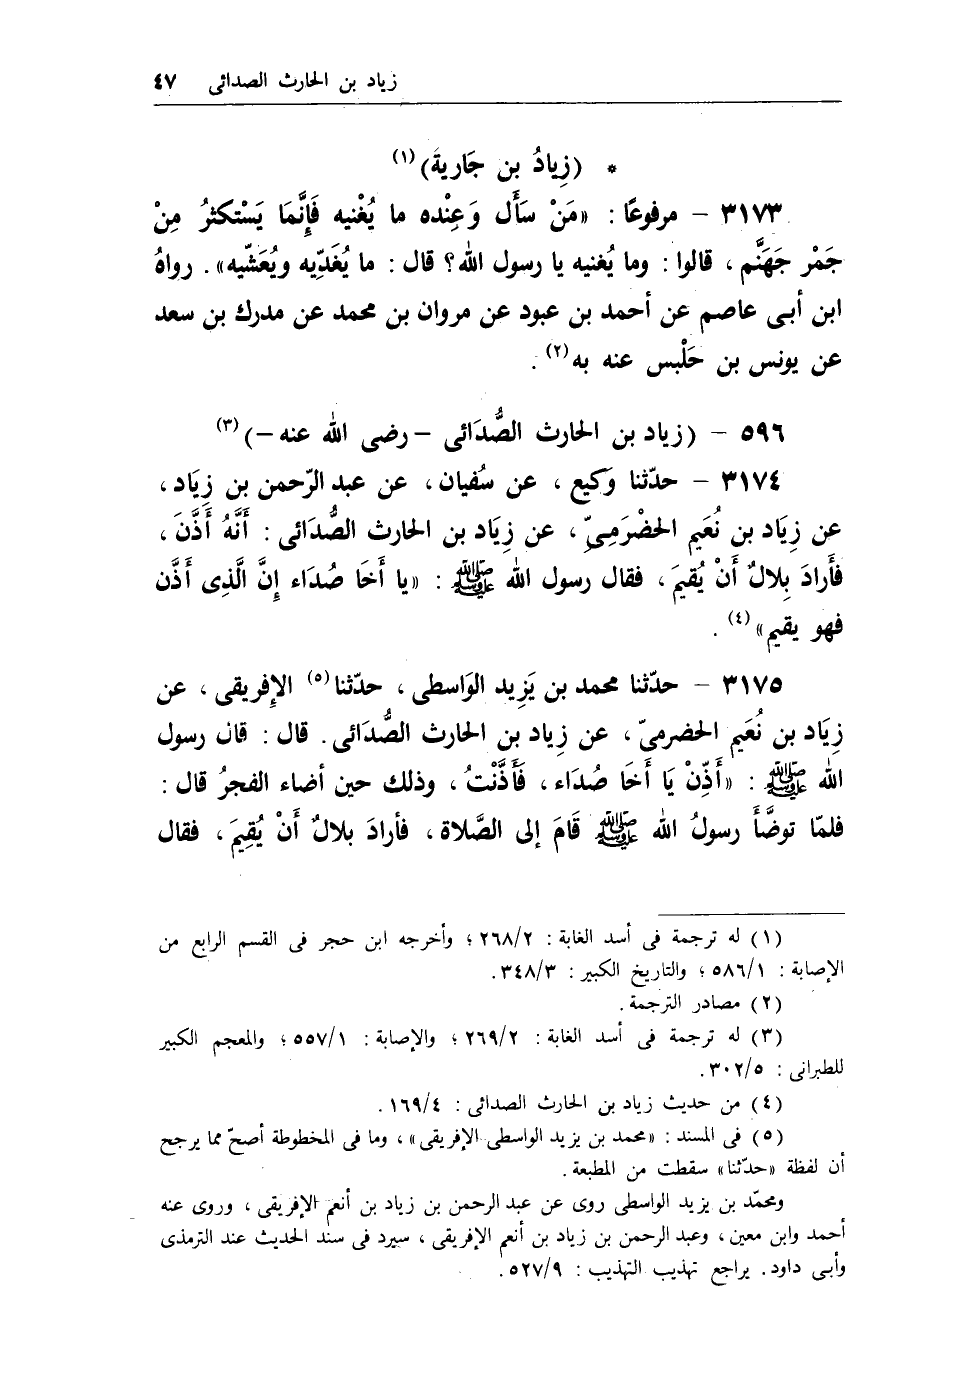 زياد بن الحارث الصدائى ٤٧
* (زِيادُ بن جَارية)(١)
٣١٧٣ – مرفوعًا : «مَنْ سَأَل وَعِنْده ما يُغْنيه فَإِنَّمَا يَسْتكثرُ مِنْ
جَمْر جَهَنَّم ، قالوا : وما يُغنيه يا رسول الله؟ قال : ما يُغَدِّيه ويُعَشّيه» . رواهُ
ابن أبى عاصم عن أحمد بن عبود عن مروان بن محمد عن مدرك بن سعد
عن يونس بن حَلْبس عنه به(٢) .
٥٩٦ – (زياد بن الحارث الصُّدَائى –رضى الله عنه–)(٣)
٣١٧٤ – حدّثنا وَكيع ، عن سُفيان ، عن عبد الرّحمن بن زِيَاد ،
عن زِيَاد بن نُعَيم الحضْرَمِىّ ، عن زِيَاد بن الحارث الصُّدَائى : أَنَّهُ أَذَّنَ ،
فأَرادَ بِلالٌ أَنْ يُقيمَ ، فقال رسول الله ﷺ : «يا أَخَا صُدَاء إِنَّ الَّذِى أَذَّن
فهو يقيم»(٤) .
٣١٧٥ – حدّثنا محمد بن يَزِيد الوَاسطى ، حدّثنا(٥) الإفريقى ، عن
زِيَاد بن نُعَيم الحضرمىّ ، عن زِياد بن الحارث الصُّدَائى . قال : قال رسول
الله ﷺ : «أَذِّنْ يَا أَخَا صُدَاء ، فَأَذَّنْتُ ، وذلك حين أضاء الفجرُ قال :
فلمّا توضَّأَ رسولُ الله ﷺ قَامَ إلى الصَّلاة ، فأرادَ بلالٌ أَنْ يُقِيَمَ ، فقال
(١) له ترجمة فى أسد الغابة : ٢٦٨/٢ ؛ وأخرجه ابن حجر فى القسم الرابع من
الإصابة : ٥٨٦/١ ؛ والتاريخ الكبير : ٣٤٨/٣.
(٢) مصادر الترجمة .
(٣) له ترجمة فى أسد الغابة : ٢٦٩/٢ ؛ والإصابة : ٥٥٧/١ ؛ والمعجم الكبير
للطبرانى : ٣٠٢/٥.
(٤) من حديث زياد بن الحارث الصدائى : ١٦٩/٤ .
(٥) فى المسند : «محمد بن يزيد الواسطى الإفريقى» ، وما فى المخطوطة أصحّ مما يرجح
أن لفظة «حدّثنا» سقطت من المطبعة .
ومحمّد بن يزيد الواسطى روى عن عبد الرحمن بن زياد بن أنعم الإفريقى ، وروى عنه
أحمد وابن معين ، وعبد الرحمن بن زياد بن أنعم الإفريقى ، سيرد فى سند الحديث عند الترمذى
وأبى داود . يراجع تهذيب التهذيب : ٥٢٧/٩ .